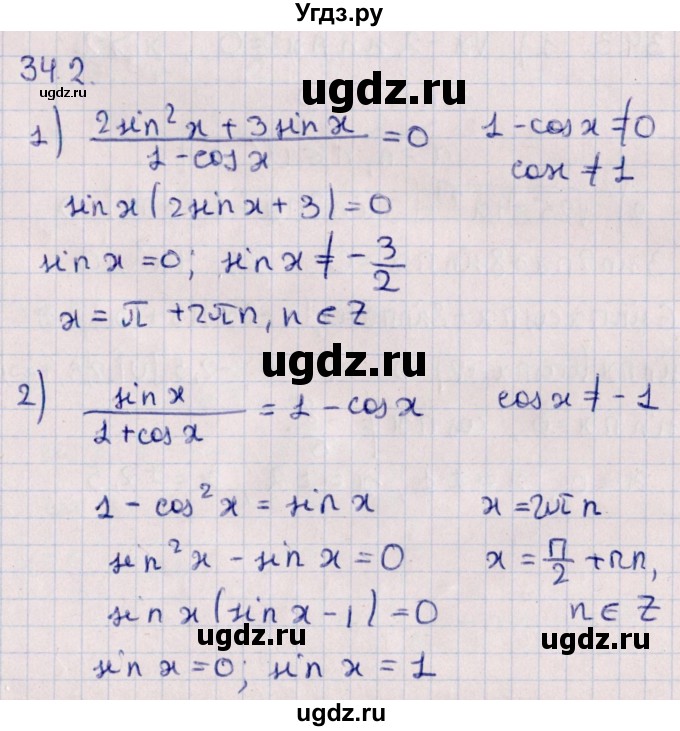 Угдз.ру
34.2.
ugdz.ru
ugdz.ru
1) (2sin²x + 3sinx)/(1 - cosx) = 0    1 - cosx ≠ 0
cosx ≠ 1
ugdz.ru
sinx(2sinx + 3) = 0
sinx = 0; sinx ≠ -3/2
x = π + 2πn, n ∈ Z
ugdz.ru
ugdz.ru
2) sinx/(1 + cosx) = 1 - cosx    cosx ≠ -1
ugdz.ru
1 - cos²x = sinx    x = 2πn
sin²x - sinx = 0    x = π/2 + πn,
sinx(sinx - 1) = 0    n ∈ Z
ugdz.ru
ugdz.ru
sinx = 0; sinx = 1
ugdz.ru
ugdz.ru